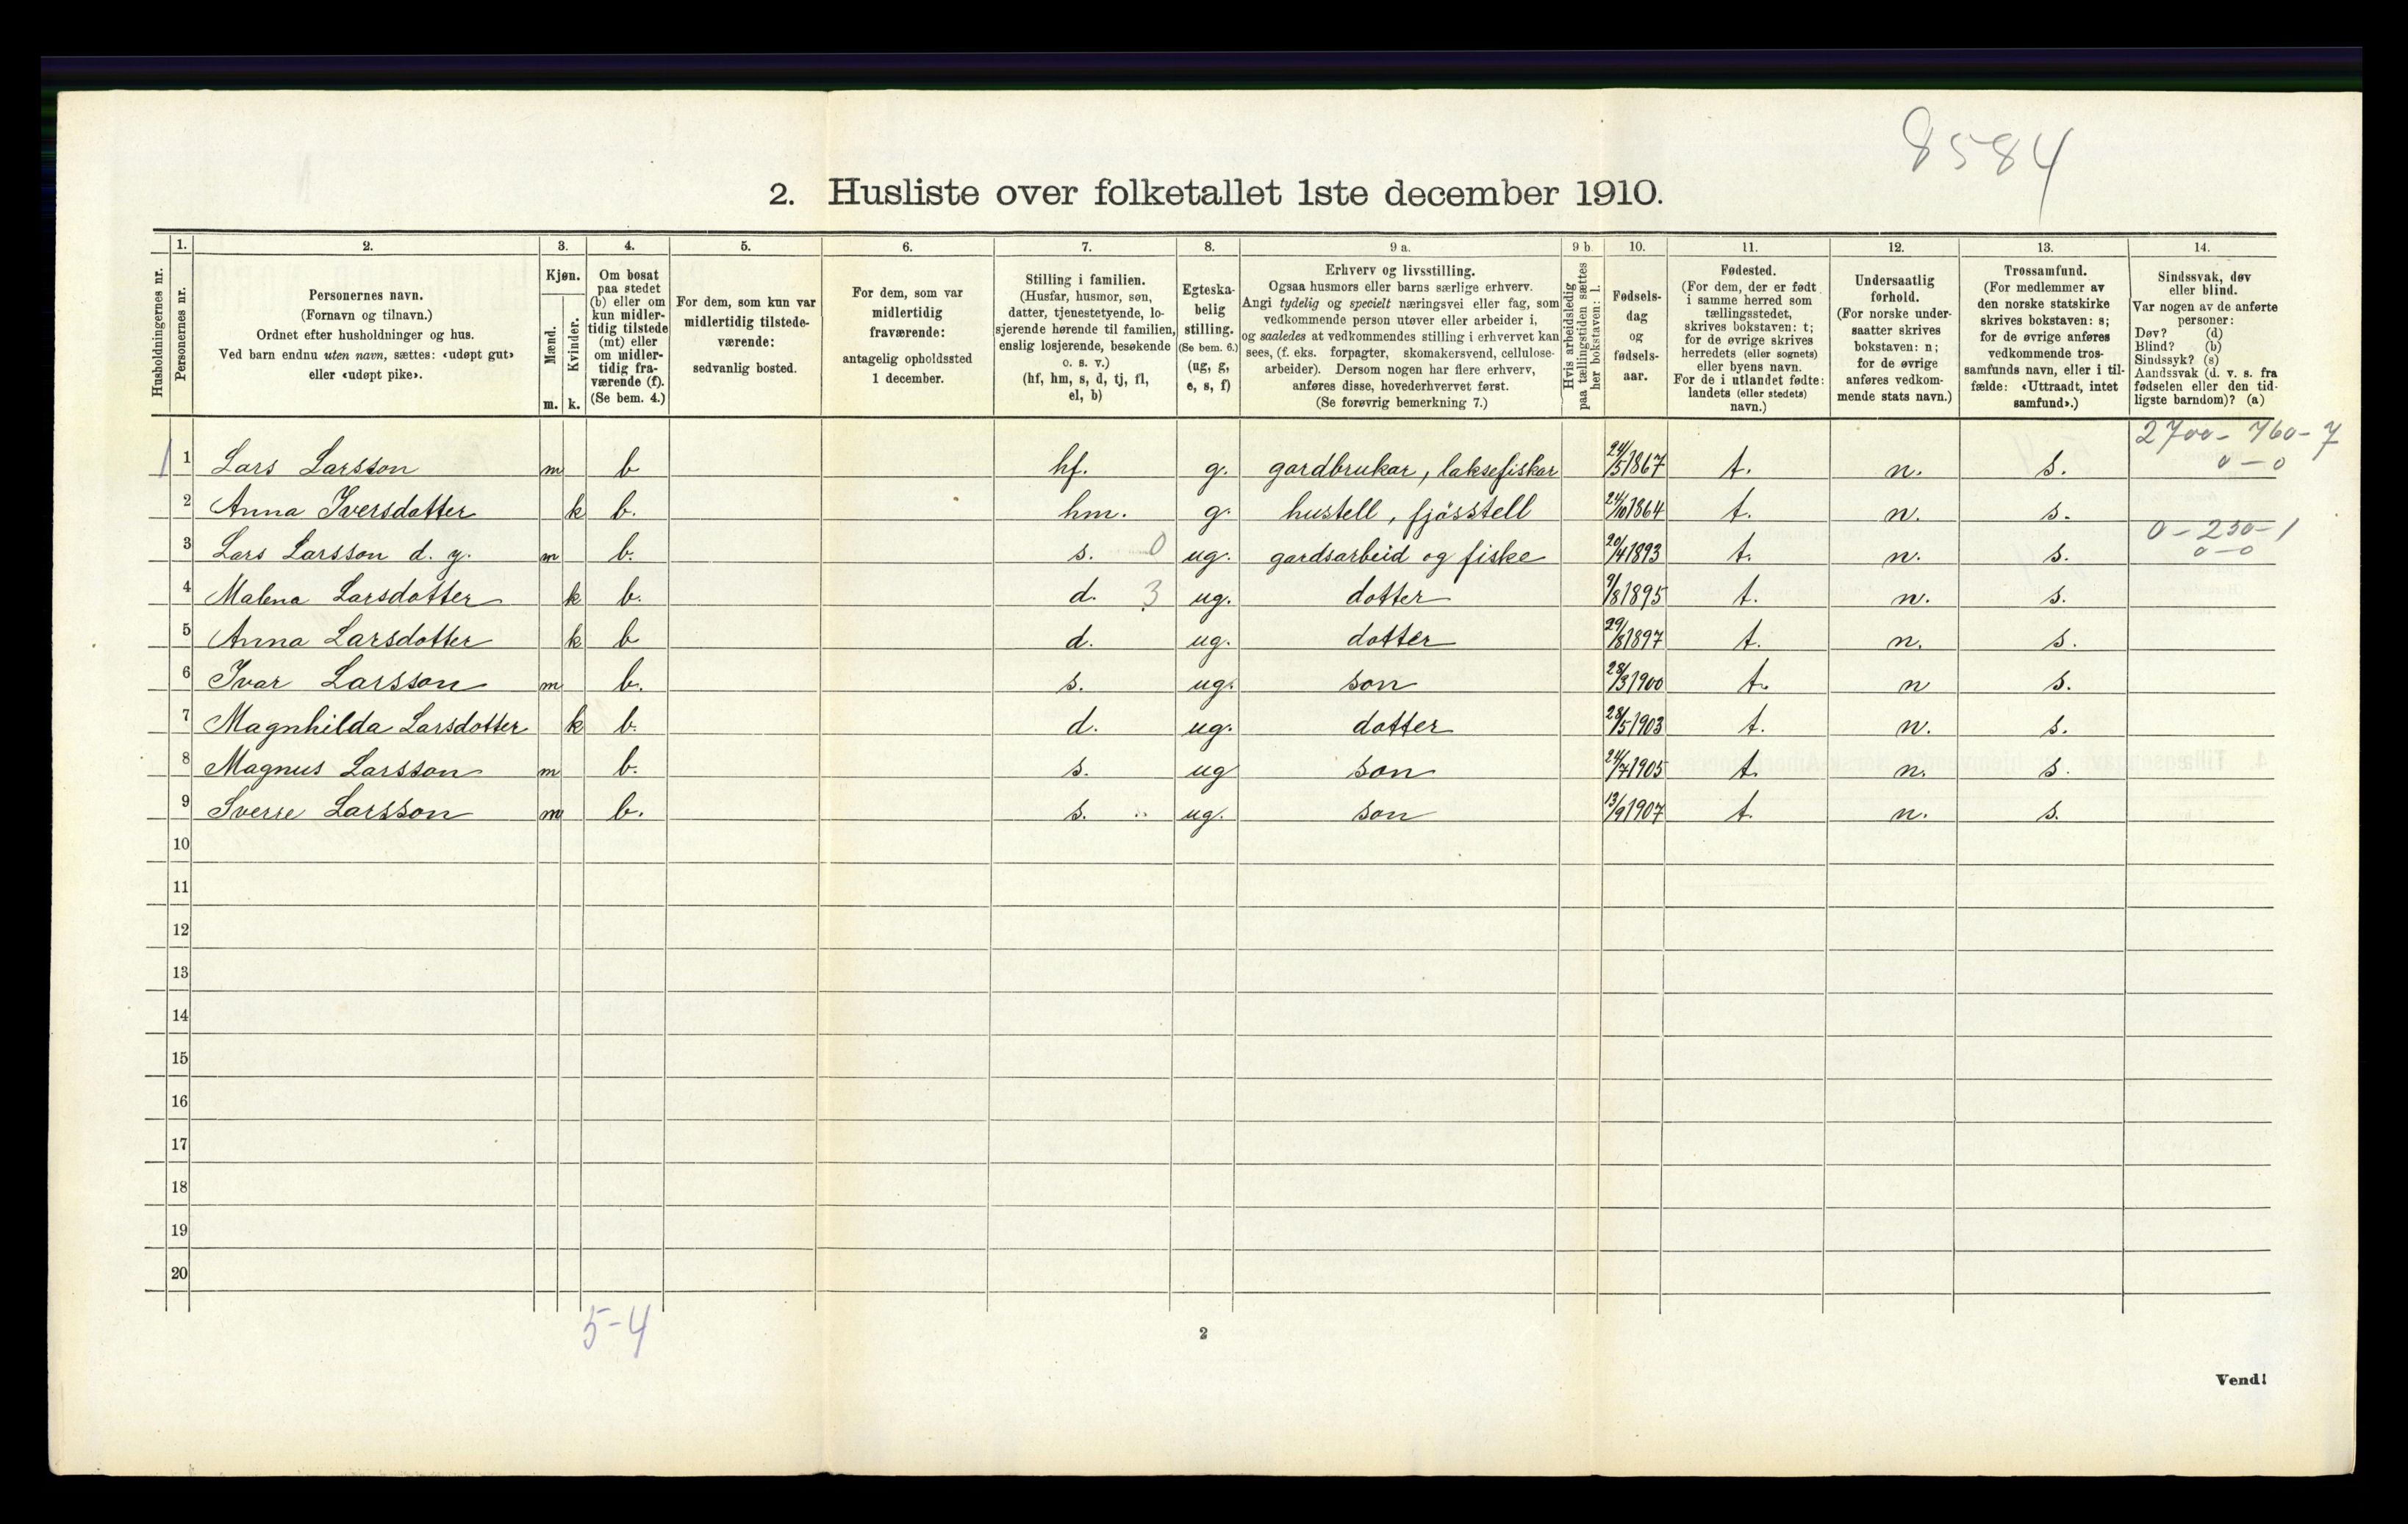 8584
2. Husliste over folketallet 1ste december 1910.
1. 2. 3. 4. 5. 6. 7. 8. 9 a. 9 b. 10. 11. 12. 13. 14.
Husholdningernes nr.
Personernes nr.
Personernes navn.
(Fornavn og tilnavn.)
Ordnet efter husholdninger og hus.
Ved barn endnu uten navn, sættes: «udøpt gut»
eller «udøpt pike».
Kjøn.
Mænd.
Kvinder.
m. k.
Om bosat
paa stedet
(b) eller om
kun midler-
tidig tilstede
(mt) eller
om midler-
tidig fra-
værende (f).
(Se bem. 4.)
For dem, som kun var
midlertidig tilstede-
værende:
sedvanlig bosted.
For dem, som var
midlertidig
fraværende:
antagelig opholdssted
1 december.
Stilling i familien.
(Husfar, husmor, søn,
datter, tjenestetyende, lo-
sjerende hørende til familien,
enslig losjerende, besøkende
o. s. v.)
(hf, hm, s, d, tj, fl,
el, b)
Egteska-
belig
stilling.
(Se bem. 6.)
(ug, g,
e, s, f)
Erhverv og livsstilling.
Ogsaa husmors eller barns særlige erhverv.
Angi tydelig og specielt næringsvei eller fag, som
vedkommende person utøver eller arbeider i,
og saaledes at vedkommendes stilling i erhvervet kan
sees, (f. eks. forpagter, skomakersvend, cellulose-
arbeider). Dersom nogen har flere erhverv,
anføres disse, hovederhvervet først.
(Se forøvrig bemerkning 7.)
Hvis arbeidsledig
paa tællingstiden sættes
her bokstaven: l.
Fødsels-
dag
og
fødsels-
aar.
Fødested.
(For dem, der er født
i samme herred som
tællingsstedet,
skrives bokstaven: t;
for de øvrige skrives
herredets (eller sognets)
eller byens navn.
For de i utlandet fødte:
landets (eller stedets)
navn.)
Undersaatlig
forhold.
(For norske under-
saatter skrives
bokstaven: n;
for de øvrige
anføres vedkom-
mende stats navn.)
Trossamfund.
(For medlemmer av
den norske statskirke
skrives bokstaven: s;
for de øvrige anføres
vedkommende tros-
samfunds navn, eller i til-
fælde: «Uttraadt, intet
samfund».)
Sindssvak, døv
eller blind.
Var nogen av de anførte
personer:
Døv? (d)
Blind? (b)
Sindssyk? (s)
Aandssvak (d. v. s. fra
fødselen eller den tid-
ligste barndom)? (a)
2700 - 760 - 7
1 1 Lars Larsson m b hf. g. gardbrukar, laksefiskar 24/5 1867 t. n. s. 0 - 0
2 Anna Iversdotter k b. hm. g. hustell, fjösstell 24/10 1864 t. n. s.
0 - 230 - 1
3 Lars Larsson d. y. m b. s. 0 ug. gardsarbeid og fiske 20/4 1893 t. n. s. 0 - 0
4 Malena Larsdotter k b. d. 3 ug. dotter 9/8 1895 t. n. s.
5 Anna Larsdotter k b d. ug. dotter 29/8 1897 t. n. s.
6 Ivar Larsson m b. s. ug. son 28/3 1900 t. n s.
7 Magnhilda Larsdotter k b. d. ug. dotter 28/5 1903 t. n. s.
8 Magnus Larsson m b. s. ug son 24/7 1905 t. n. s.
9 Sverre Larsson m b. s. ug. son 13/9 1907 t. n. s.
10
11
12
13
14
15
16
17
18
19
20
5-4
2
Vend!